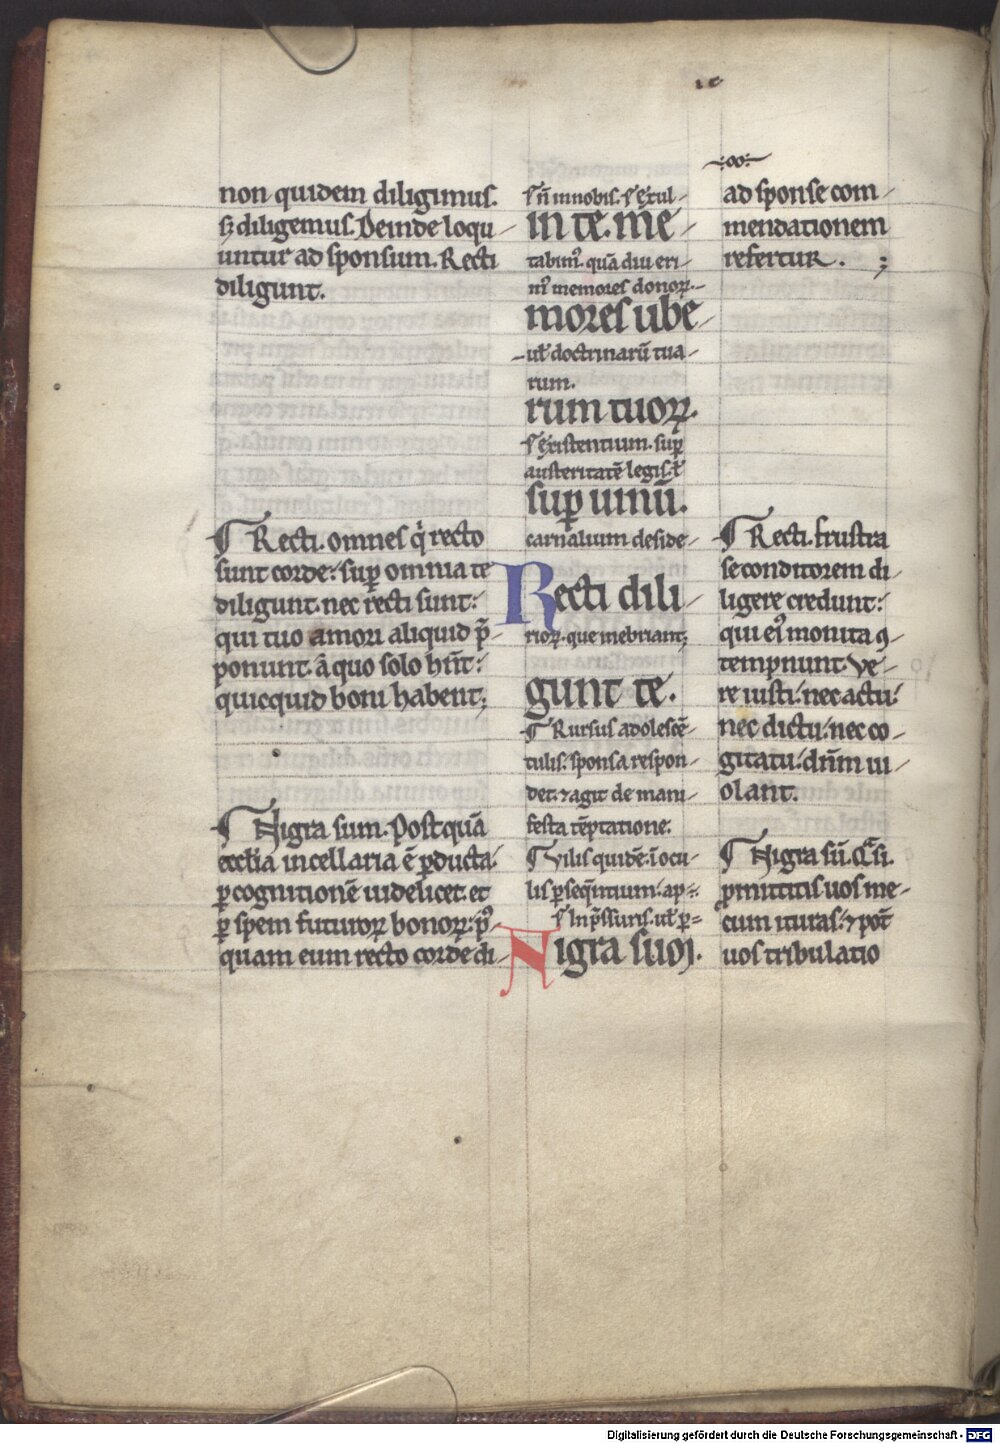 non quidem diligimus.
sꝫ diligemus. Deinde loqu-
untur ad sponsum. Recti
diligunt.
¶ Recti. omnes q̇ recto
sunt corde: sup̲ omnia te
diligunt. nec recti sunt:
qui tuo amori aliquid p̄-
ponunt. a quo solo hn̄t:
quicquid boni habent;
¶ Nigra sum. Postquā
ecclīa in cellaria ē ꝑducta.
ꝑ cognitionē uidelicet. et
ꝑ spem futuroꝝ bonoꝝ: p⁹-
quam eum recto corde di-
s. n̄ in nobis. s. exul-
in te. me-
tabim⁹. quā diu eri-
m⁹ memores donoꝝ.
mores ube-
uł doctrinarū tua-
rum.
rum tuoꝝ.
s. existentium. sup̲
austeritatē legis. ł
sup̲ uinū.
carnalium deside-
Recti dili-
rioꝝ. que inebriant;
gunt te.
¶ Rursus adolescē-
tulis. sponsa respon-
det. ⁊ agit de mani-
festa tēptatione.
¶ Vilis quidē. ī ocu-
lis ꝑseq̄ntium. ap-
s. In p̄ssuris. uł ꝑ-
Nigra sum.
ad sponse com-
mendationem
refertur. ;
¶ Recti. frustra
se conditorem di-
ligere credunt:
qui ei⁹ monita ꝯ-
tempnunt. Ve-
re iusti. nec actu.
nec dictu. nec co-
gitatu. dn̄m ui-
olant.
¶ Nigra sū. Q̄si.
ꝓmittitis uos me-
cum ituras. ⁊ pot̄
uos tribulatio
Digitalisierung gefördert durch die Deutsche Forschungsgemeinschaft - DFG